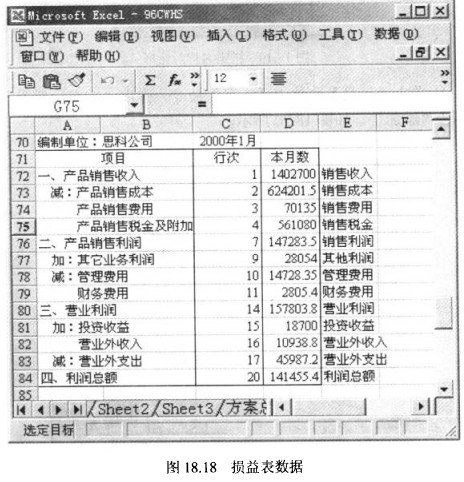 Microsoft Excel - 96CWHS
文件(F) 编辑(E) 视图(V) 插入(I) 格式(O) 工具(T) 数据(D)
窗口(W) 帮助(H)
Σ fx 12
G75 =
A B C D E F
70 编制单位：思科公司 2000年1月
71 项目 行次 本月数
72 一、产品销售收入 1 1402700 销售收入
73 减：产品销售成本 2 624201.5 销售成本
74 产品销售费用 3 70135 销售费用
75 产品销售税金及附加 4 561080 销售税金
76 二、产品销售利润 7 147283.5 销售利润
77 加：其它业务利润 9 28054 其他利润
78 减：管理费用 10 14728.35 管理费用
79 财务费用 11 2805.4 财务费用
80 三、营业利润 14 157803.8 营业利润
81 加：投资收益 15 18700 投资收益
82 营业外收入 16 10938.8 营业外收入
83 减：营业外支出 17 45987.2 营业外支出
84 四、利润总额 20 141455.4 利润总额
85
Sheet2 Sheet3 方案总
选定目标
图 18.18 损益表数据